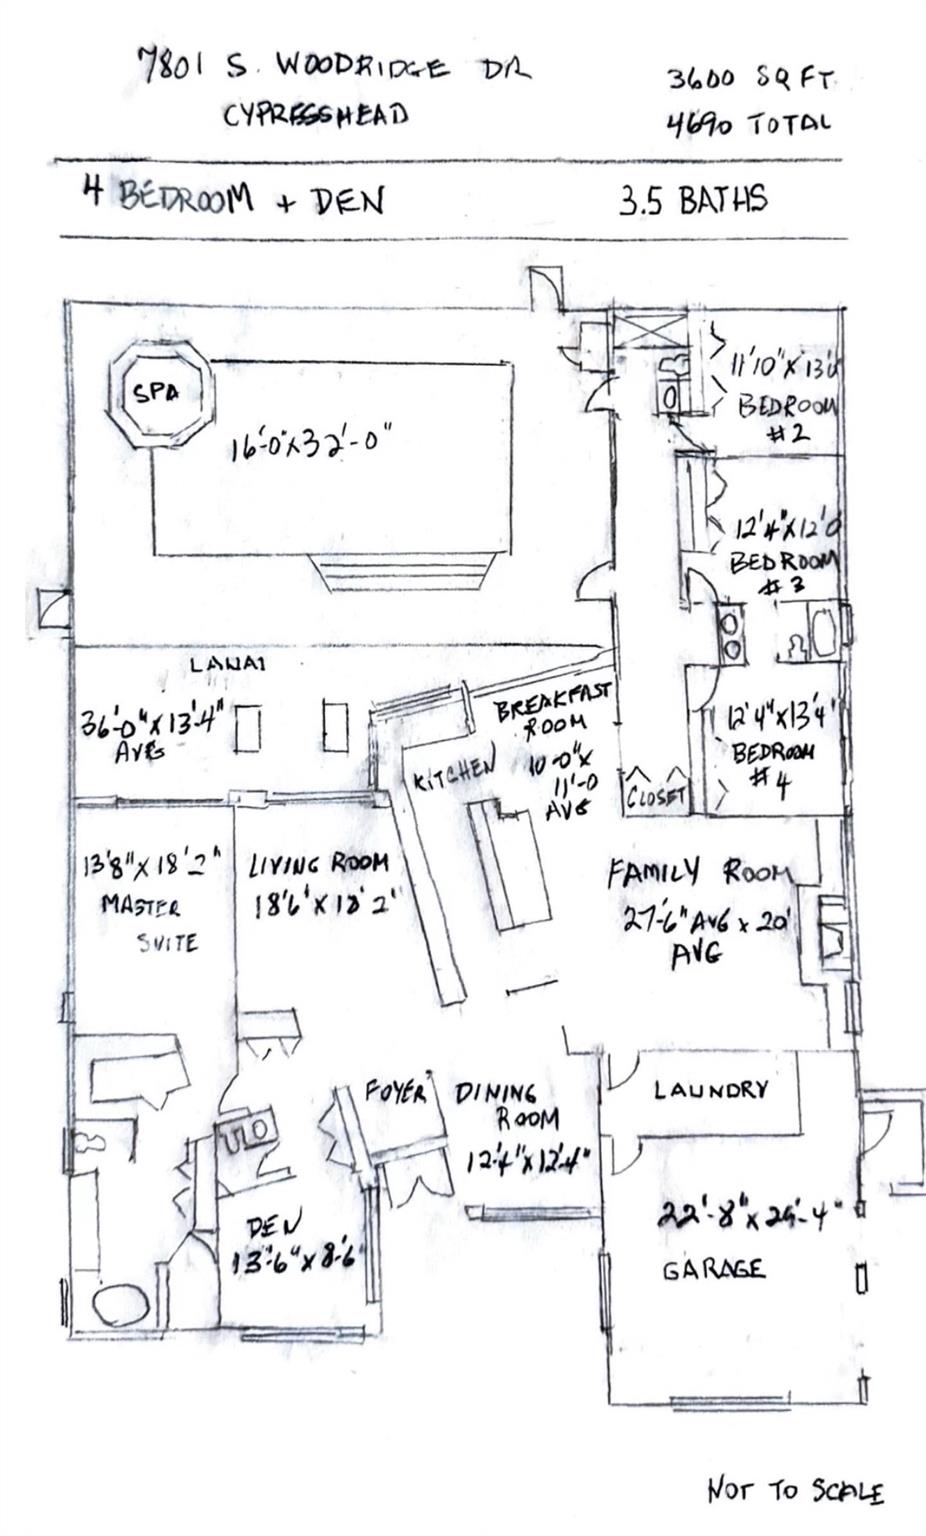 7801 S. WOODRIDGE DR
CYPRESSHEAD
3600 SQ FT.
4690 TOTAL
4 BEDROOM + DEN
3.5 BATHS
SPA
16'-0" x 32'-0"
11'10" x 13'0
BEDROOM
#2
12'4" x 12'0
BEDROOM
#3
LANAI
36'-0" x 13'-4"
AVG
BREAKFAST
ROOM
10'-0" x
11'-0
AVG
KITCHEN
12'4" x 13'4"
BEDROOM
#4
CLOSET
13'8" x 18'2"
MASTER
SUITE
LIVING ROOM
18'6" x 18'2"
FAMILY ROOM
27'-6" AVG x 20'
AVG
FOYER
DINING
ROOM
12'-4" x 12'-4"
LAUNDRY
DEN
13'-6" x 8'-6"
22'-8" x
GARAGE
NOT TO SCALE